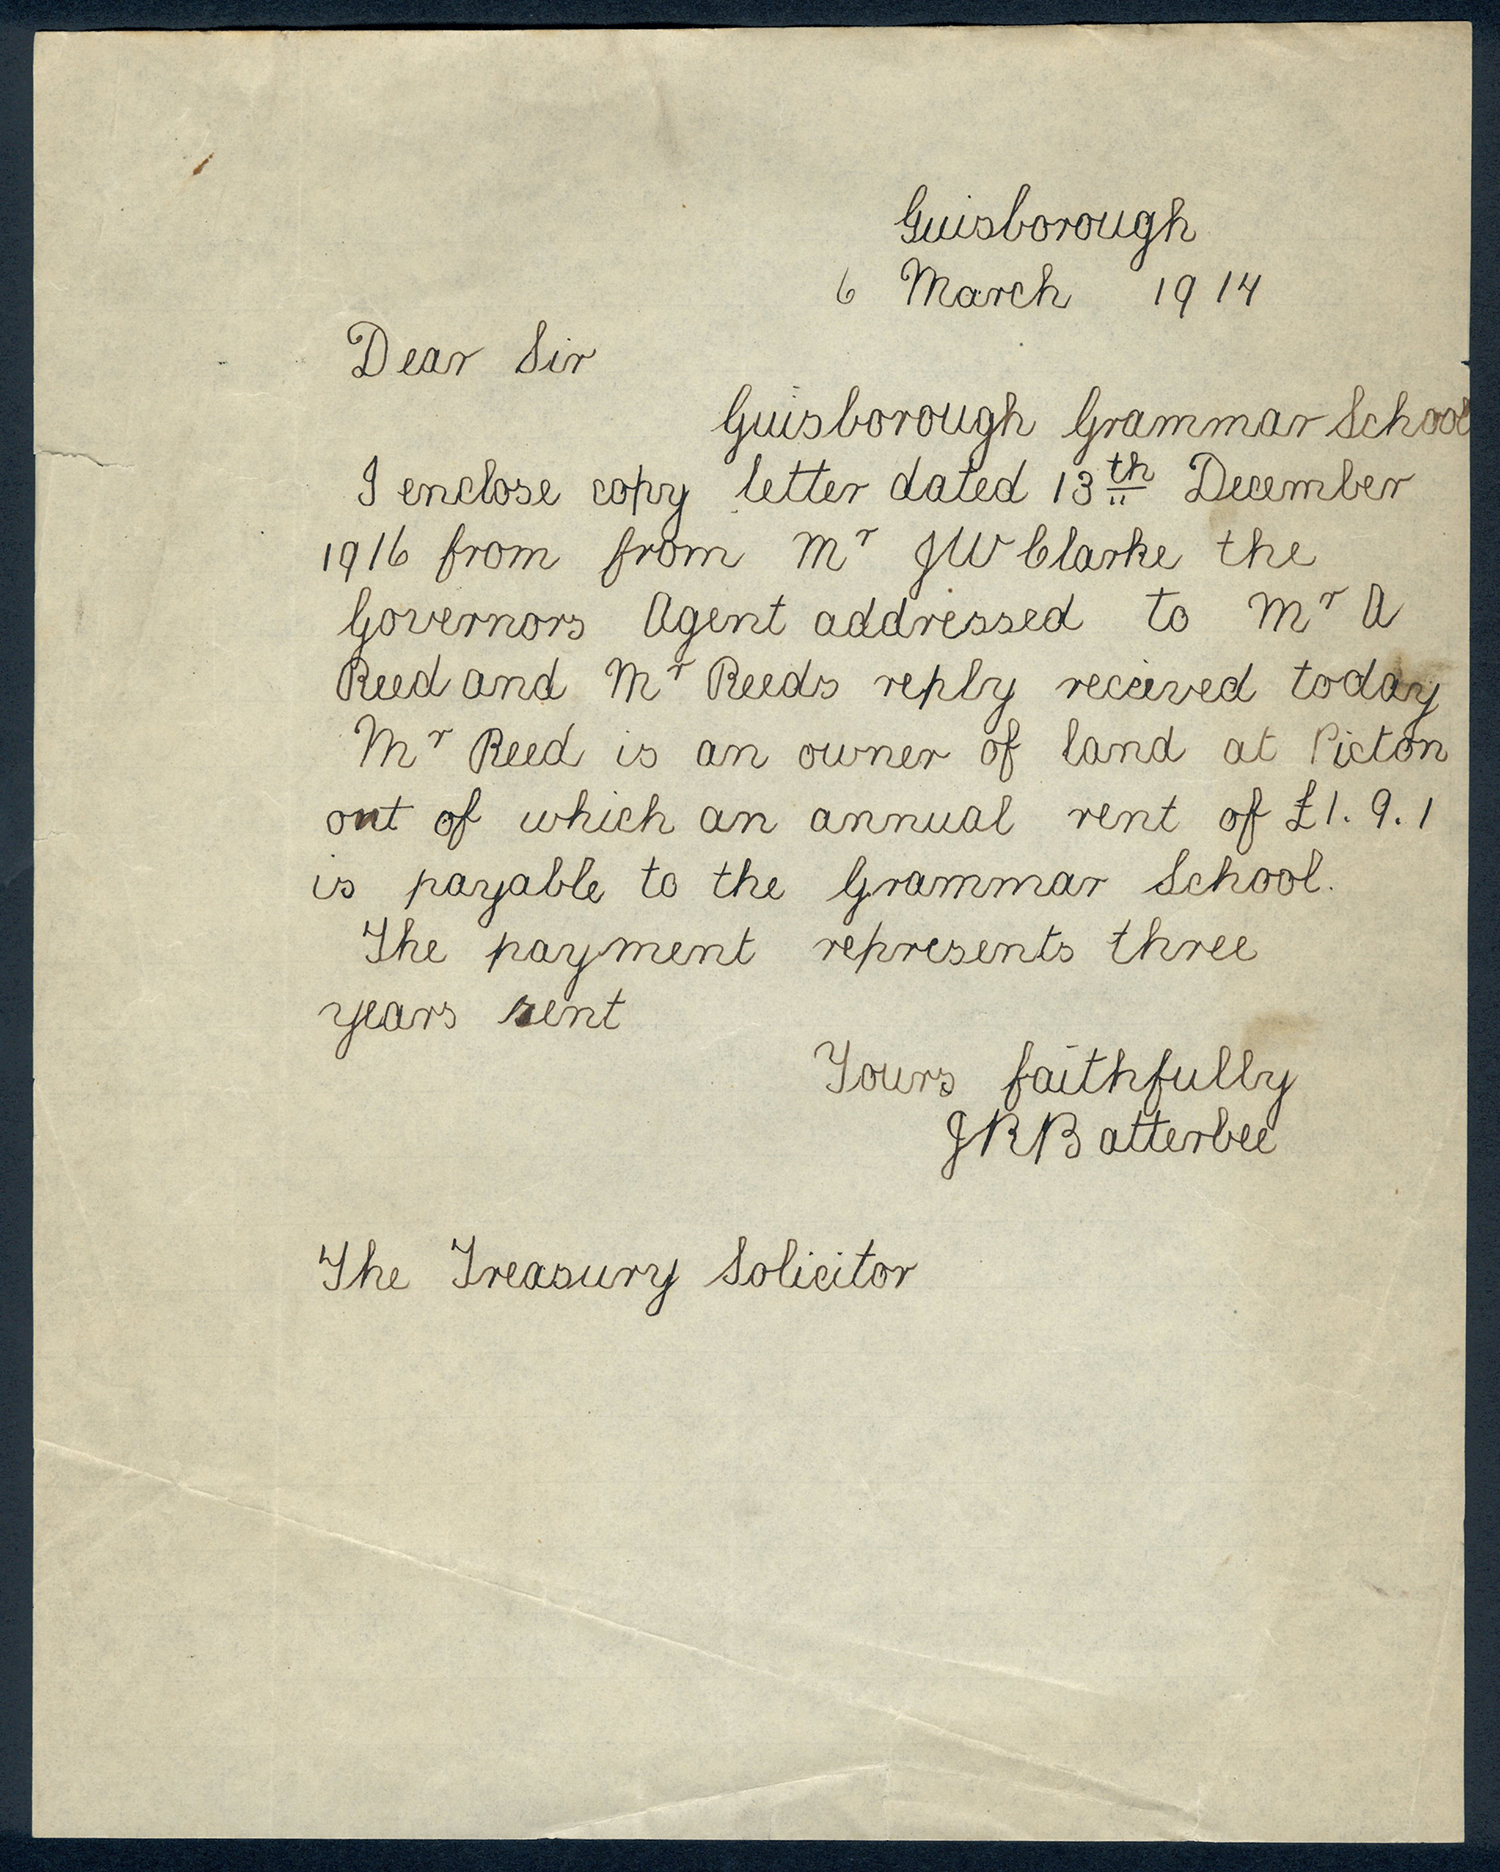 Guisborough
6 March 1914
Dear Sir
Guisborough Grammar School
I enclose copy letter dated 13th December
1916 from from Mr JW Clarke the
Governors Agent addressed to Mr A
Reed and Mr Reeds reply received today
Mr Reed is an owner of land at Picton
out of which an annual rent of £1. 9. 1
is payable to the Grammar School.
The payment represents three
years rent
Yours faithfully
JRBatterbee
The Treasury Solicitor